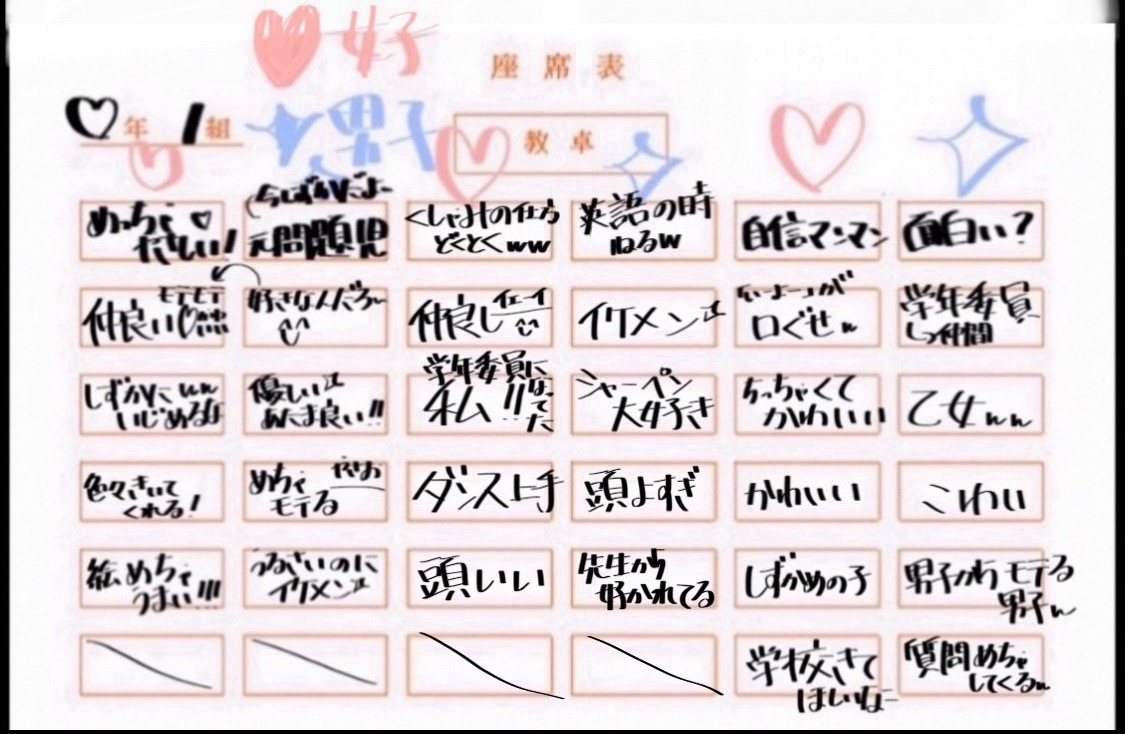 好
座席表
年 1組
男子
教卓
めっちゃ
やさしい!
元問題児
くしゃみの仕方
どくとくww
英語の時
ねるw
自信マンマン
面白い?
モテモテ
仲良い
好きなんだろ〜
仲良し イェーイ
イケメン
口ぐせw
学年委員
しつ仲間
しずかにww
いじめるな
優しい
あたま良い!!
学年委員に
私!! なってた
シャーペン
大好き
ちっちゃくて
かわいい
乙女ww
色々きいて
くれる!
めちゃ
モテる
ダンス上手
頭よすぎ
かわいい
こわい
絵めちゃ
うまい!!!
うるさいのに
イケメン
頭いい
先生から
好かれてる
しずかめの子
男子からモテる
男子w
学校きて
ほしいな
質問めちゃ
してくるw